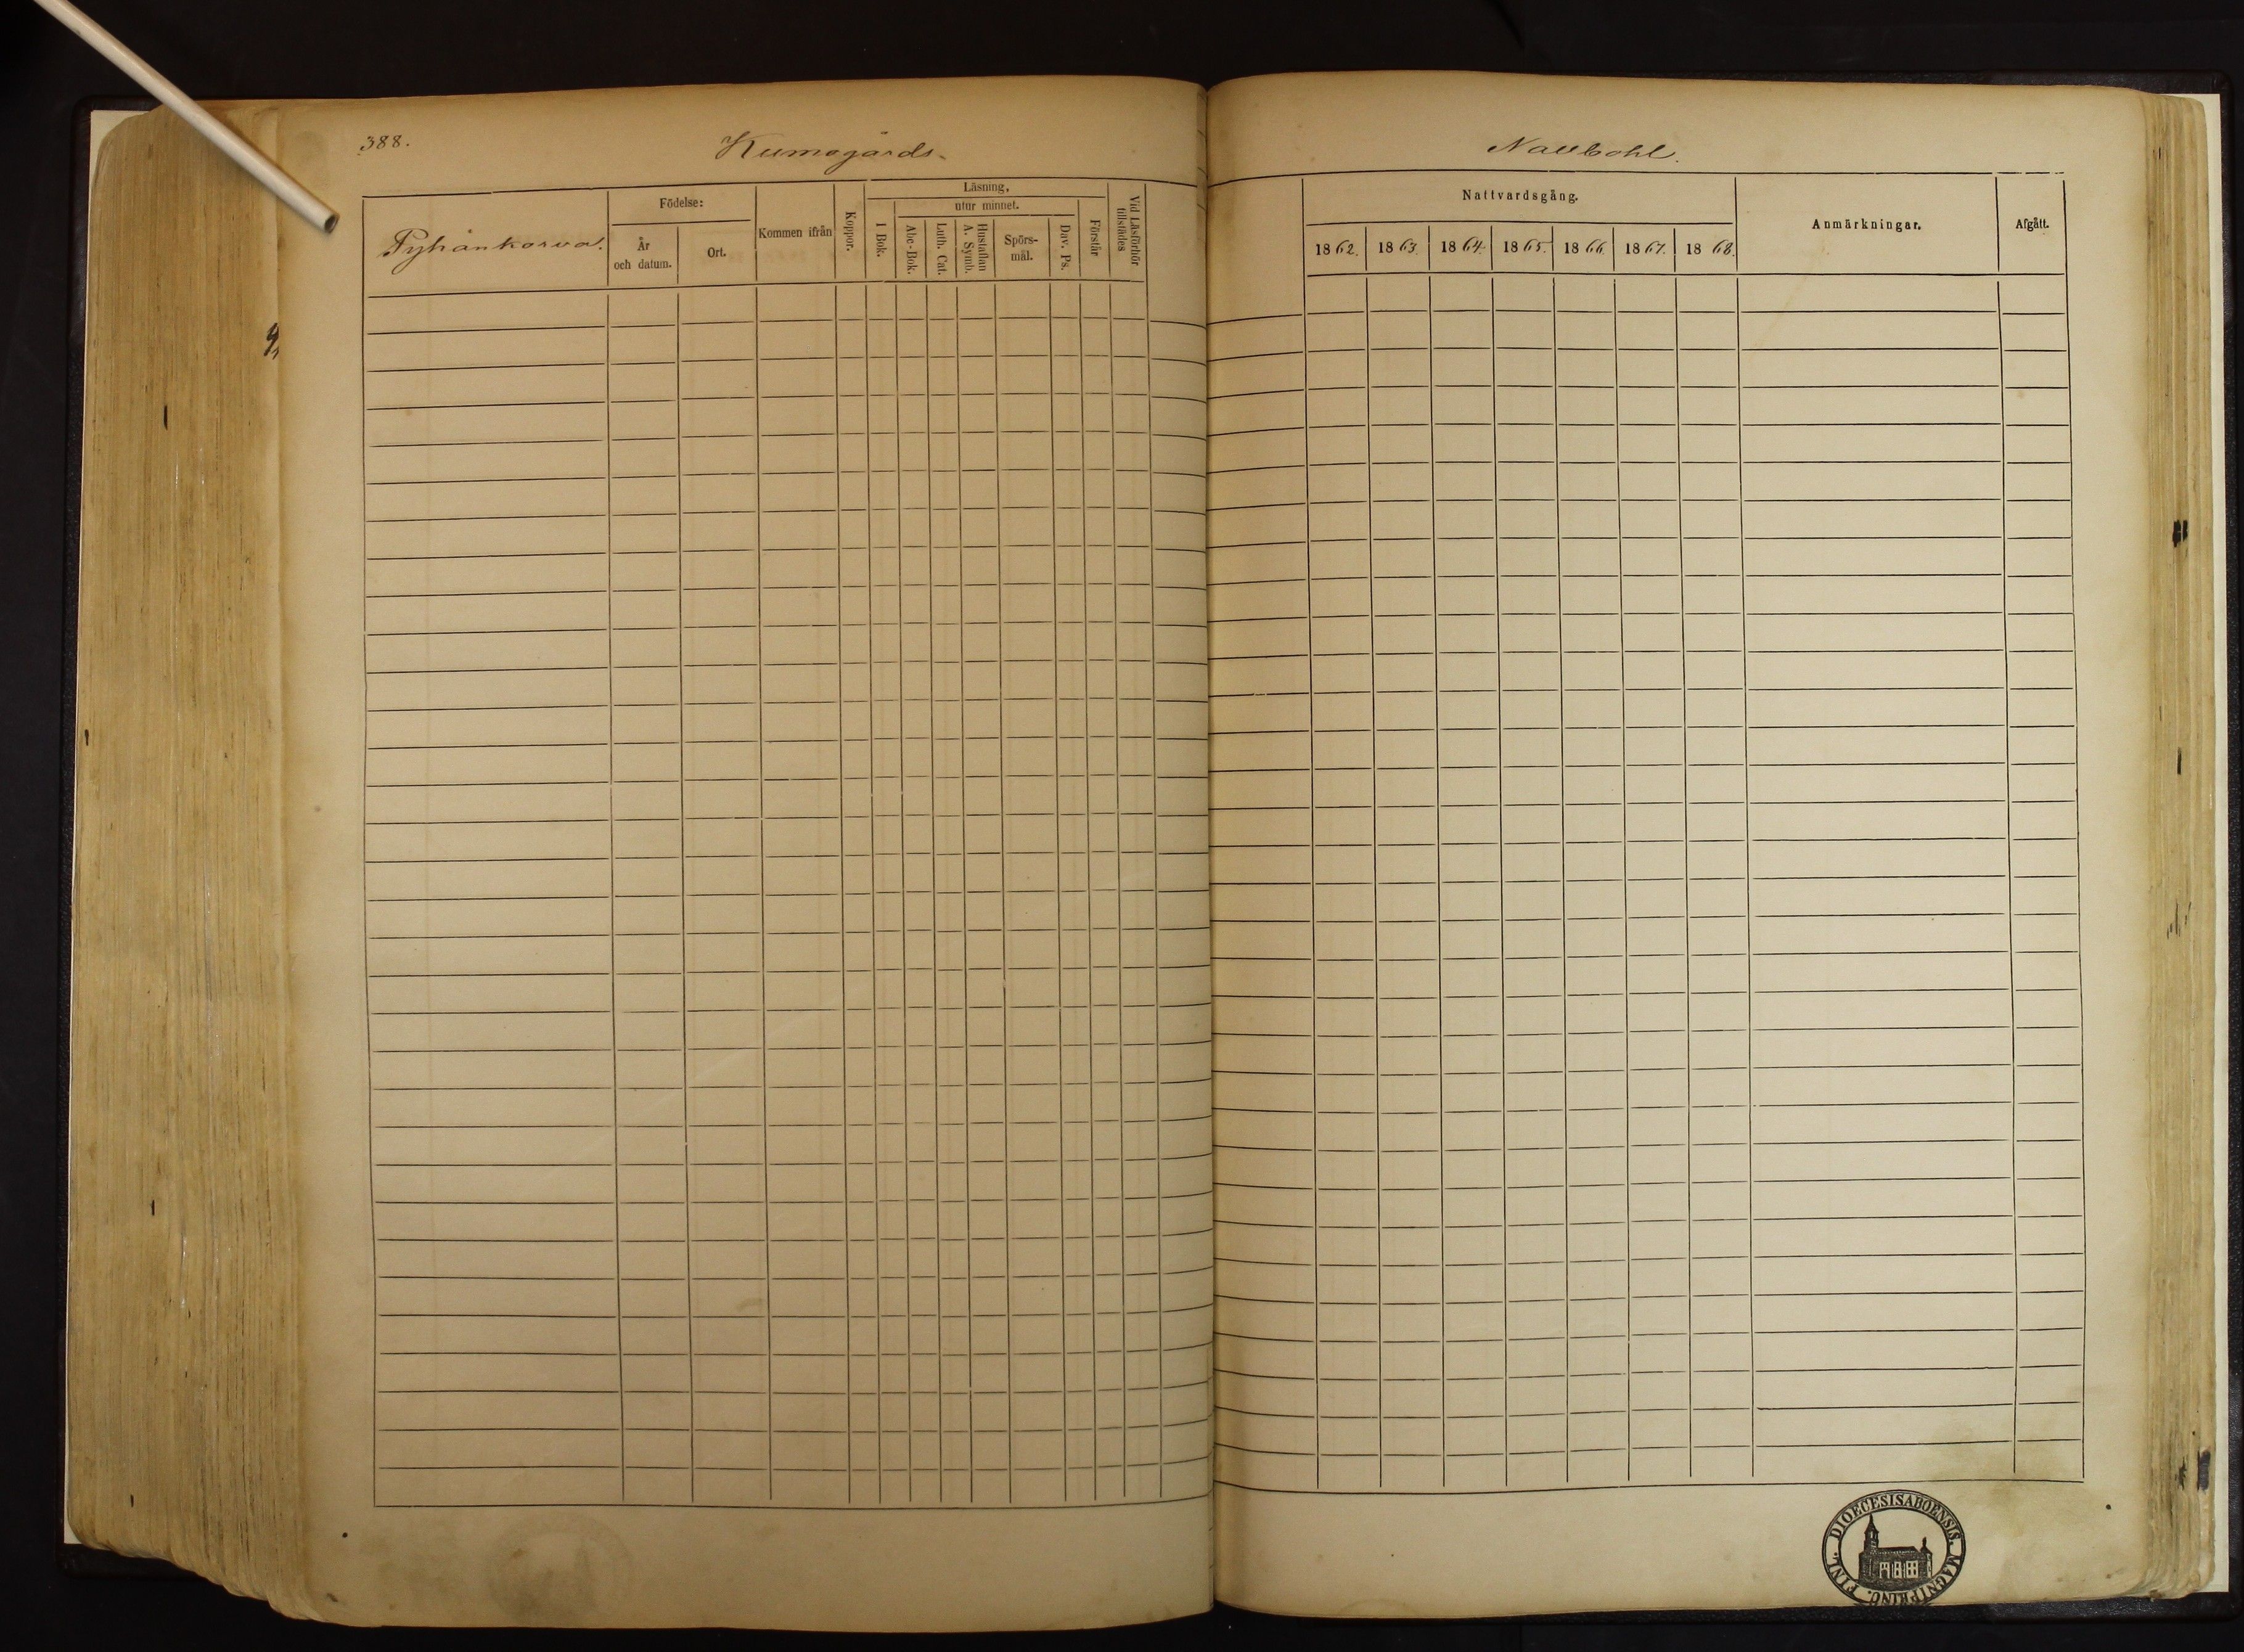 388.
Kumogårds
Nallbohl.
Pyhänkorva.
Födelse:
År
och datum.
Ort.
Kommen ifrån
Koppor.
Läsning,
I Bok.
utur minnet.
Abc-Bok.
Luth. Cat.
Hustaflan
A. Symb.
Spörs-
mål.
Dav. Ps.
Förstår
Vid Läsförhör
tillstädes
Nattvardsgång.
1862. 1863. 1864. 1865. 1866. 1867. 1868.
Anmärkningar.
Afgått.
FINL. DIOECESIS ABOENSIS. MAGNI PRINC.